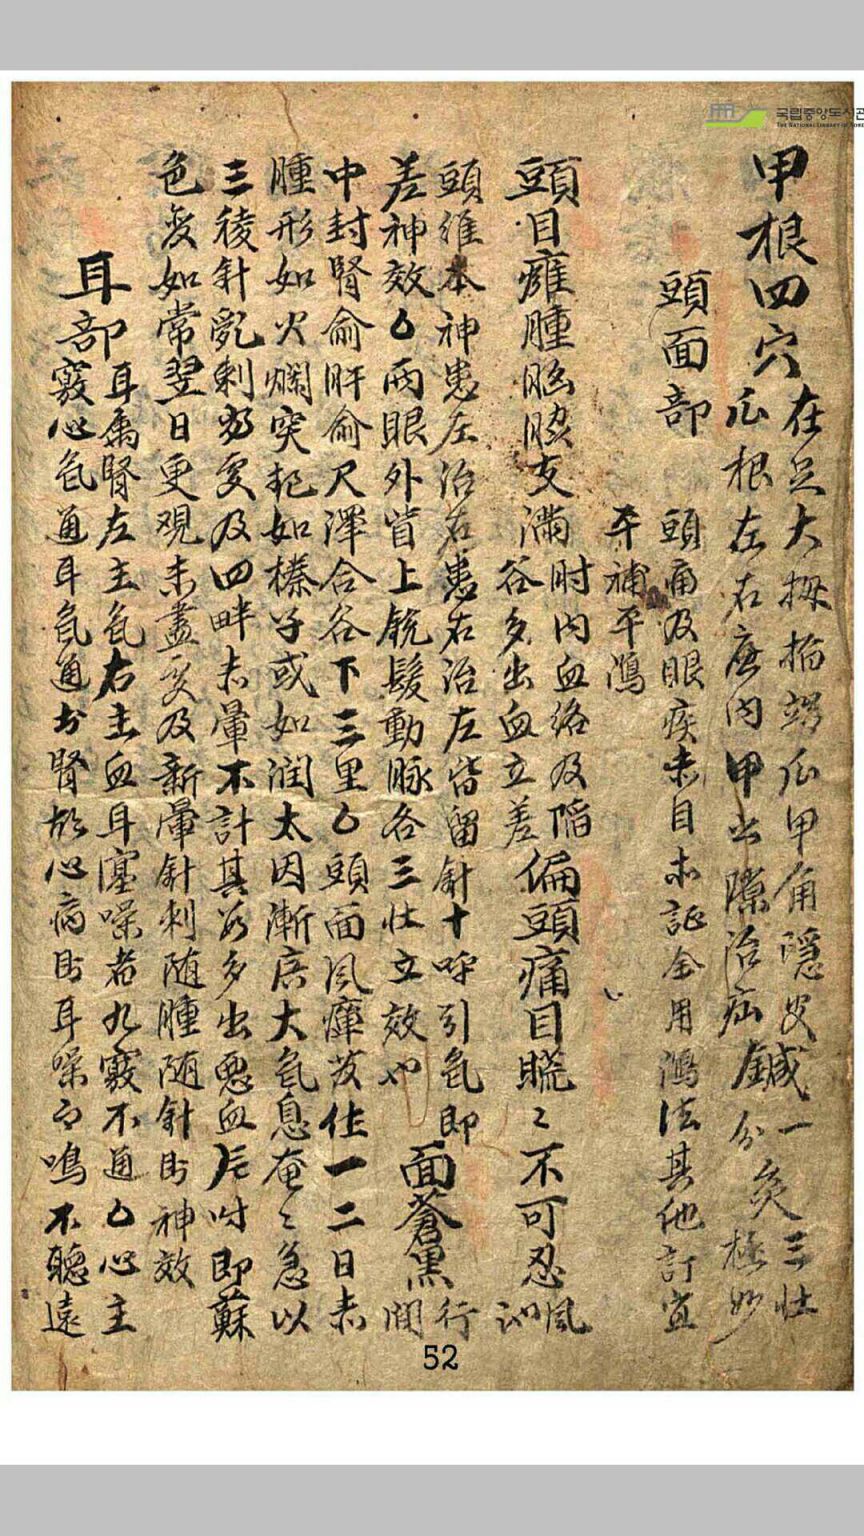 국립중앙도서관
THE NATIONAL LIBRARY OF KOREA
甲根四穴
在足大拇指端爪甲角隱皮
爪根左右廉內甲之隙治疝
鍼一分灸三壯極妙
頭面部
頭痛及眼疾赤目赤證全用瀉法其他訂宜
平補平瀉
頭目癰腫胸脇支滿
肘內血絡及陷
谷多出血立差
偏頭痛目䀮〻不可忍
風
頭維本神患左治右患右治左皆留針十呼引氣即
差神效○兩眼外眥上銳髮動脉各三壯立效也
面蒼黑
行間
中封腎俞肝俞尺澤合谷下三里○頭面風瘴發作一二日赤
腫形如火爛突起如榛子或如潤太因漸广大氣息奄〻急以
三稜針亂刺多及四畔赤暈不計其數多出惡血即蘇
色變如常翌日更觀未盡及新暈針刺随腫随針則神效
耳部
耳屬腎左主氣右主血耳塞噪者九竅不通○心主
竅心氣通耳氣通於腎故心病則耳噪而鳴不聽遠
52